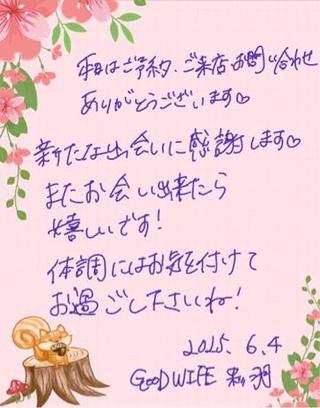 本日はご予約、ご来店、お問い合わせ
ありがとうございます♡
新たな出会いに感謝します♡
またお会い出来たら
嬉しいです!
体調にはお気を付けて
お過ごし下さいね!
2025.6.4
GOOD WIFE